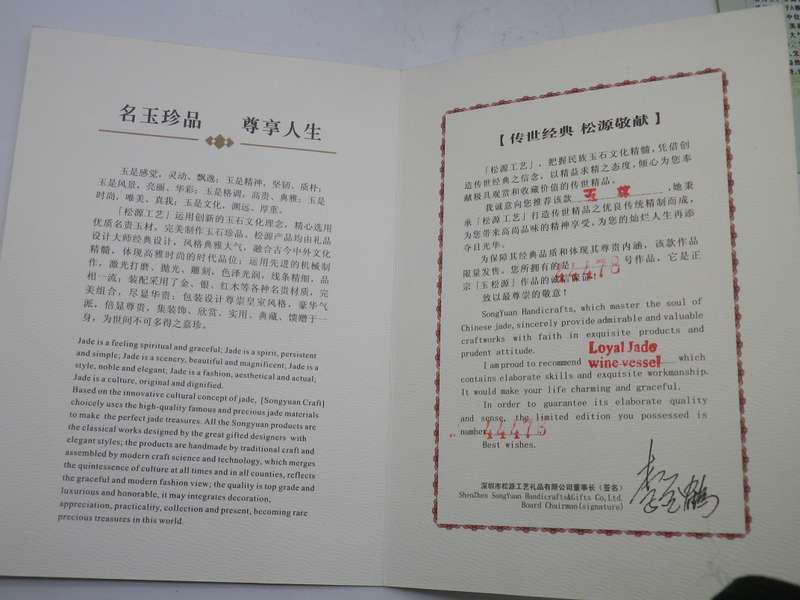 名玉珍品 尊享人生
玉是感觉，灵动、飘逸；玉是精神，坚韧、质朴；
玉是风景，亮丽、华彩；玉是格调，高贵、典雅；玉是
时尚，唯美、真我；玉是文化，渊远、厚重。
「松源工艺」运用创新的玉石文化理念，精心选用
优质名贵玉材，完美制作玉石珍品。松源产品均由礼品
设计大师经典设计，风格典雅大气，融合古今中外文化
精髓，体现高雅时尚的时代品位；运用先进的机械制
作，激光打磨、抛光、雕刻，色泽光润，线条精细，品
相一流；装配采用了金、银、红木等各种名贵材质，完
美组合，尽显华贵；包装设计尊崇皇室风格，豪华气
派，倍显尊贵，集装饰、欣赏、实用、典藏、馈赠于一
身，为世间不可多得之嘉珍。
Jade is a feeling spiritual and graceful; Jade is a spirit, persistent
and simple; Jade is a scenery, beautiful and magnificent; Jade is a
style, noble and elegant; Jade is a fashion, aesthetical and actual;
Jade is a culture, original and dignified.
Based on the innovative cultural concept of jade, [Songyuan Craft]
choicely uses the high-quality famous and precious jade materials
to make the perfect jade treasures. All the Songyuan products are
the classical works designed by the great gifted designers with
elegant styles; the products are handmade by traditional craft and
assembled by modern craft science and technology, which merges
the quintessence of culture at all times and in all counties, reflects
the graceful and modern fashion view; the quality is top grade and
luxurious and honorable, it may integrates decoration,
appreciation, practicality, collection and present, becoming rare
precious treasures in this world.
【 传世经典 松源敬献 】
「松源工艺」，把握民族玉石文化精髓，凭借创
造传世经典之信念，以精益求精之态度，倾心为您奉
献极具观赏和收藏价值的传世精品。
我诚意向您推荐该款 玉 尊 ,她秉
承「松源工艺」打造传世精品之优良传统精制而成，
为您带来高尚品味的精神享受，为您的灿烂人生再添
夺目光华。
为保障其经典品质和体现其尊贵内涵，该款作品
限量发售。您所拥有的是 44478 号作品，它是正
宗「玉松源」作品的诚信保证！
致以最尊崇的敬意！
SongYuan Handicrafts, which master the soul of
Chinese jade, sincerely provide admirable and valuable
craftworks with faith in exquisite products and
prudent attitude.
I am proud to recommend Loyal Jade wine-vessel which
contains elaborate skills and exquisite workmanship.
It would make your life charming and graceful.
In order to guarantee its elaborate quality
and sense, the limited edition you possessed is
number 44478
Best wishes.
深圳市松源工艺礼品有限公司董事长（签名）
ShenZhen SongYuan Handicrafts&Gifts Co,Ltd.
Board Chairmao(signature)